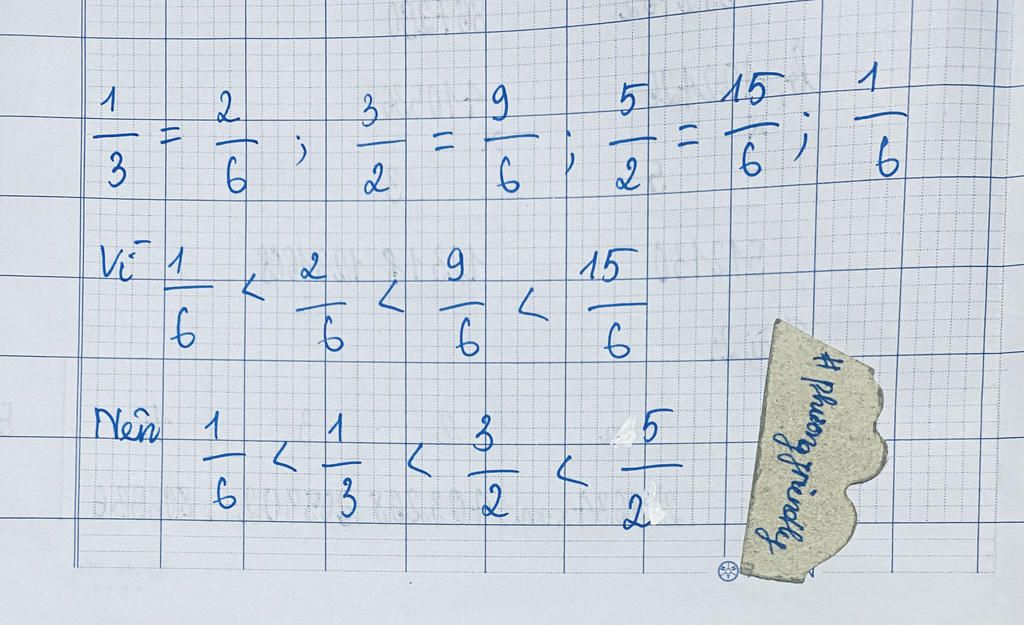 1/3 = 2/6 ; 3/2 = 9/6 ; 5/2 = 15/6 ; 1/6
Vì 1/6 < 2/6 < 9/6 < 15/6
Nên 1/6 < 1/3 < 3/2 < 5/2
# phuongfriendly